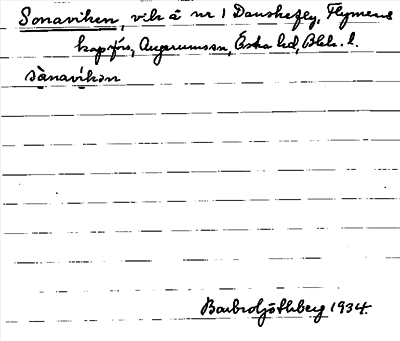 Sonaviken, vik å nr 1 Danskefly, Flymens
kapfös, Augerumssn, Östra hd, Blek. l.
sånavikon
Barbro Ljöthberg 1934.